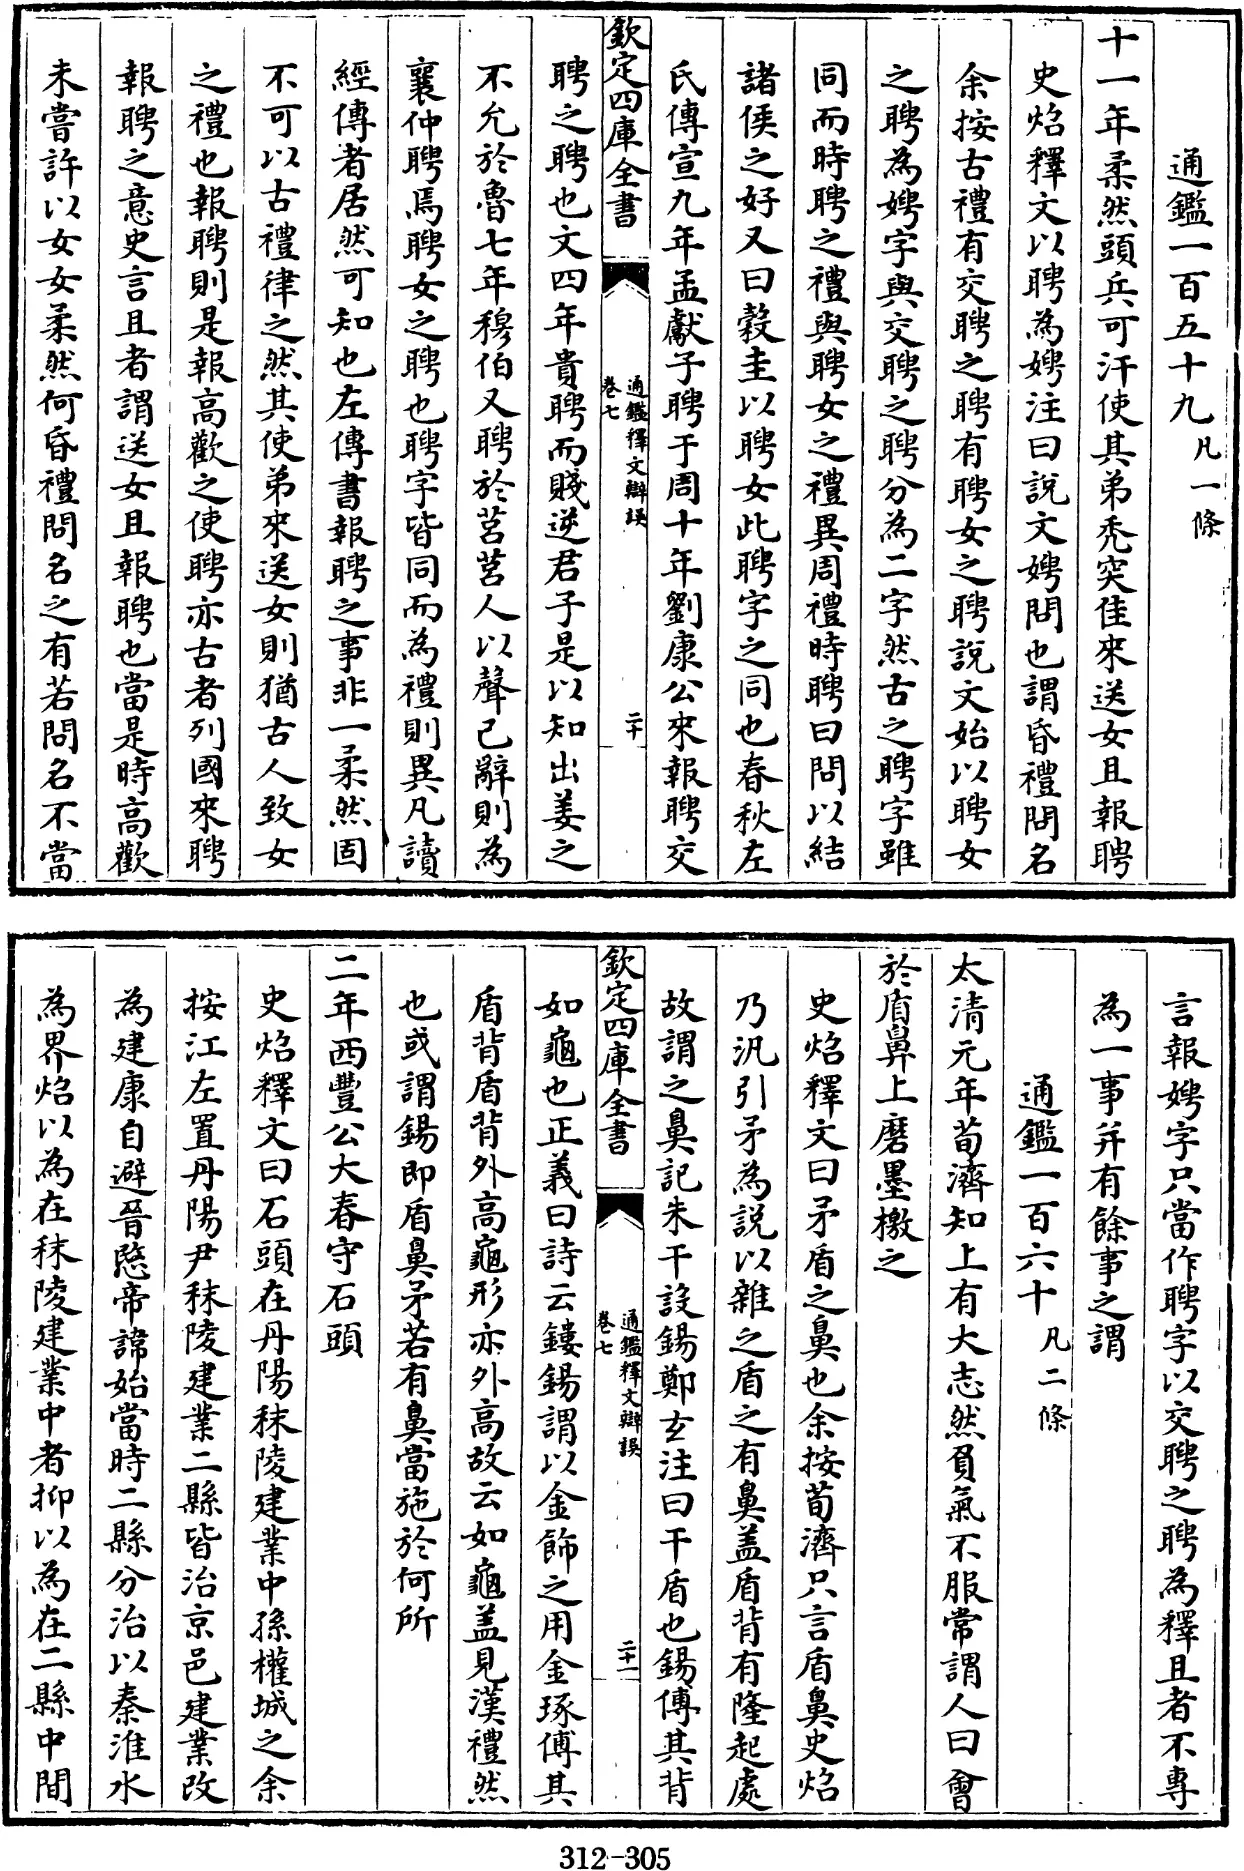 通鑑一百五十九凡一條
十一年柔然頭兵可汗使其弟禿突佳來送女且報聘
史炤釋文以聘為娉注曰説文娉問也謂昏禮問名
余按古禮有交聘之聘有聘女之聘説文始以聘女
之聘為娉字與交聘之聘分為二字然古之聘字雖
同而時聘之禮與聘女之禮異周禮時聘曰問以結
諸侯之好又曰穀圭以聘女此聘字之同也春秋左
氏傳宣九年孟獻子聘于周十年劉康公來報聘交
欽定四庫全書
通鑑釋文辯誤
卷七
二十
聘之聘也文四年貴聘而賤逆君子是以知出姜之
不允於魯七年穆伯又聘於莒莒人以聲己辭則為
襄仲聘焉聘女之聘也聘字皆同而為禮則異凡讀
經傳者居然可知也左傳書報聘之事非一柔然固
不可以古禮律之然其使弟來送女則猶古人致女
之禮也報聘則是報高歡之使聘亦古者列國來聘
報聘之意史言且者謂送女且報聘也當是時高歡
未嘗許以女女柔然何昏禮問名之有若問名不當
言報娉字只當作聘字以交聘之聘為釋且者不專
為一事并有餘事之謂
通鑑一百六十凡二條
太清元年荀濟知上有大志然負氣不服常謂人曰會
於盾鼻上磨墨檄之
史炤釋文曰矛盾之鼻也余按荀濟只言盾鼻史炤
乃汎引矛為説以雜之盾之有鼻盖盾背有隆起處
故謂之鼻記朱干設鍚鄭玄注曰干盾也鍚傅其背
欽定四庫全書
通鑑釋文辯誤
卷七
二十一
如龜也正義曰詩云鏤鍚謂以金飾之用金琢傅其
盾背盾背外高龜形亦外高故云如龜盖見漢禮然
也或謂鍚即盾鼻矛若有鼻當施於何所
二年西豐公大春守石頭
史炤釋文曰石頭在丹陽秣陵建業中孫權城之余
按江左置丹陽尹秣陵建業二縣皆治京邑建業改
為建康自避晉愍帝諱始當時二縣分治以秦淮水
為界炤以為在秣陵建業中者抑以為在二縣中間
312-305